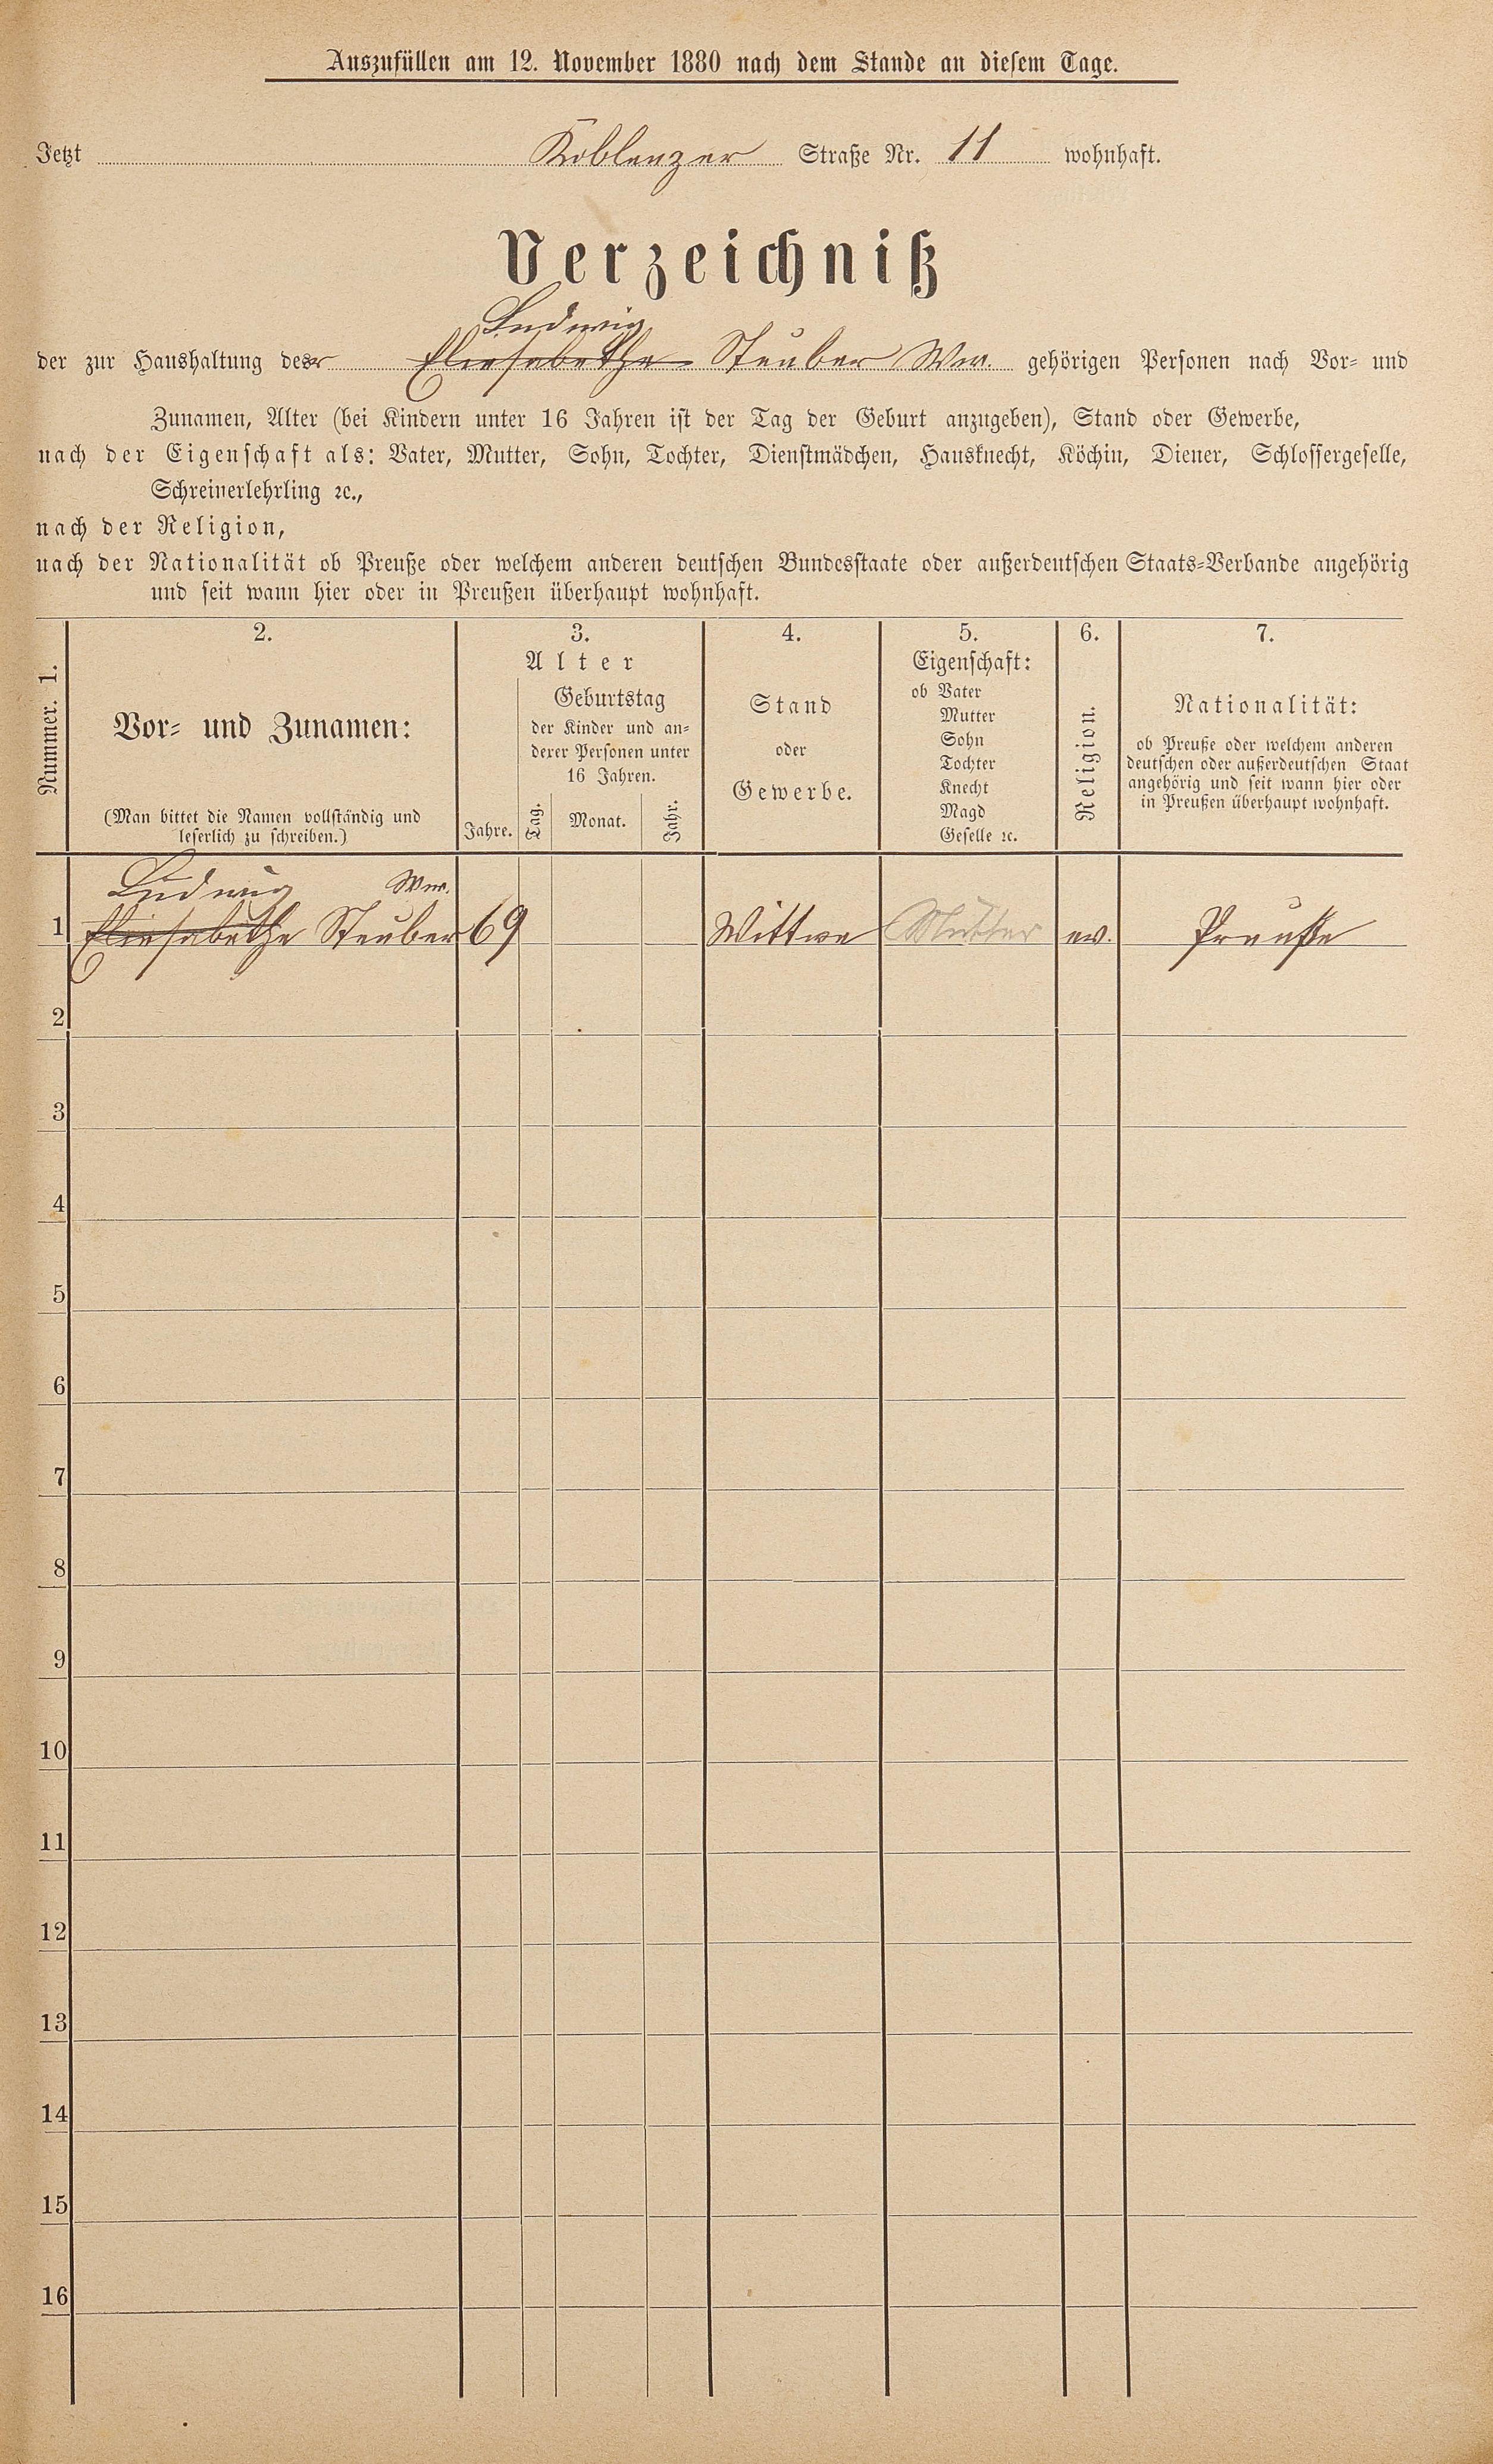 Auszufüllen am 12. November 1880 nach dem Stande an diesem Tage.
Jetzt Koblenzer Straße Nr. 11 wohnhaft.
Verzeichniß
Ludwig
der zur Haushaltung der Elisabethe Steuber Wwe. gehörigen Personen nach Vor- und
Zunamen, Alter (bei Kindern unter 16 Jahren ist der Tag der Geburt anzugeben), Stand oder Gewerbe,
nach der Eigenschaft als: Vater, Mutter, Sohn, Tochter, Dienstmädchen, Hausknecht, Köchin, Diener, Schlossergeselle,
Schreinerlehrling ꝛc.,
nach der Religion,
nach der Nationalität ob Preuße oder welchem anderen deutschen Bundesstaate oder außerdeutschen Staats-Verbande angehörig
und seit wann hier oder in Preußen überhaupt wohnhaft.
Nummer. 1.
2.
Vor- und Zunamen:
(Man bittet die Namen vollständig und
leserlich zu schreiben.)
3.
Alter
Jahre.
Geburtstag
der Kinder und an-
derer Personen unter
16 Jahren.
Tag. Monat. Jahr.
4.
Stand
oder
Gewerbe.
5.
Eigenschaft:
ob Vater
Mutter
Sohn
Tochter
Knecht
Magd
Geselle ꝛc.
6.
Religion.
7.
Nationalität:
ob Preuße oder welchem anderen
deutschen oder außerdeutschen Staat
angehörig und seit wann hier oder
in Preußen überhaupt wohnhaft.
Ludwig Wwe.
1 Elisabethe Steuber 69 Wittwe Mutter ev. Preuße
2
3
4
5
6
7
8
9
10
11
12
13
14
15
16